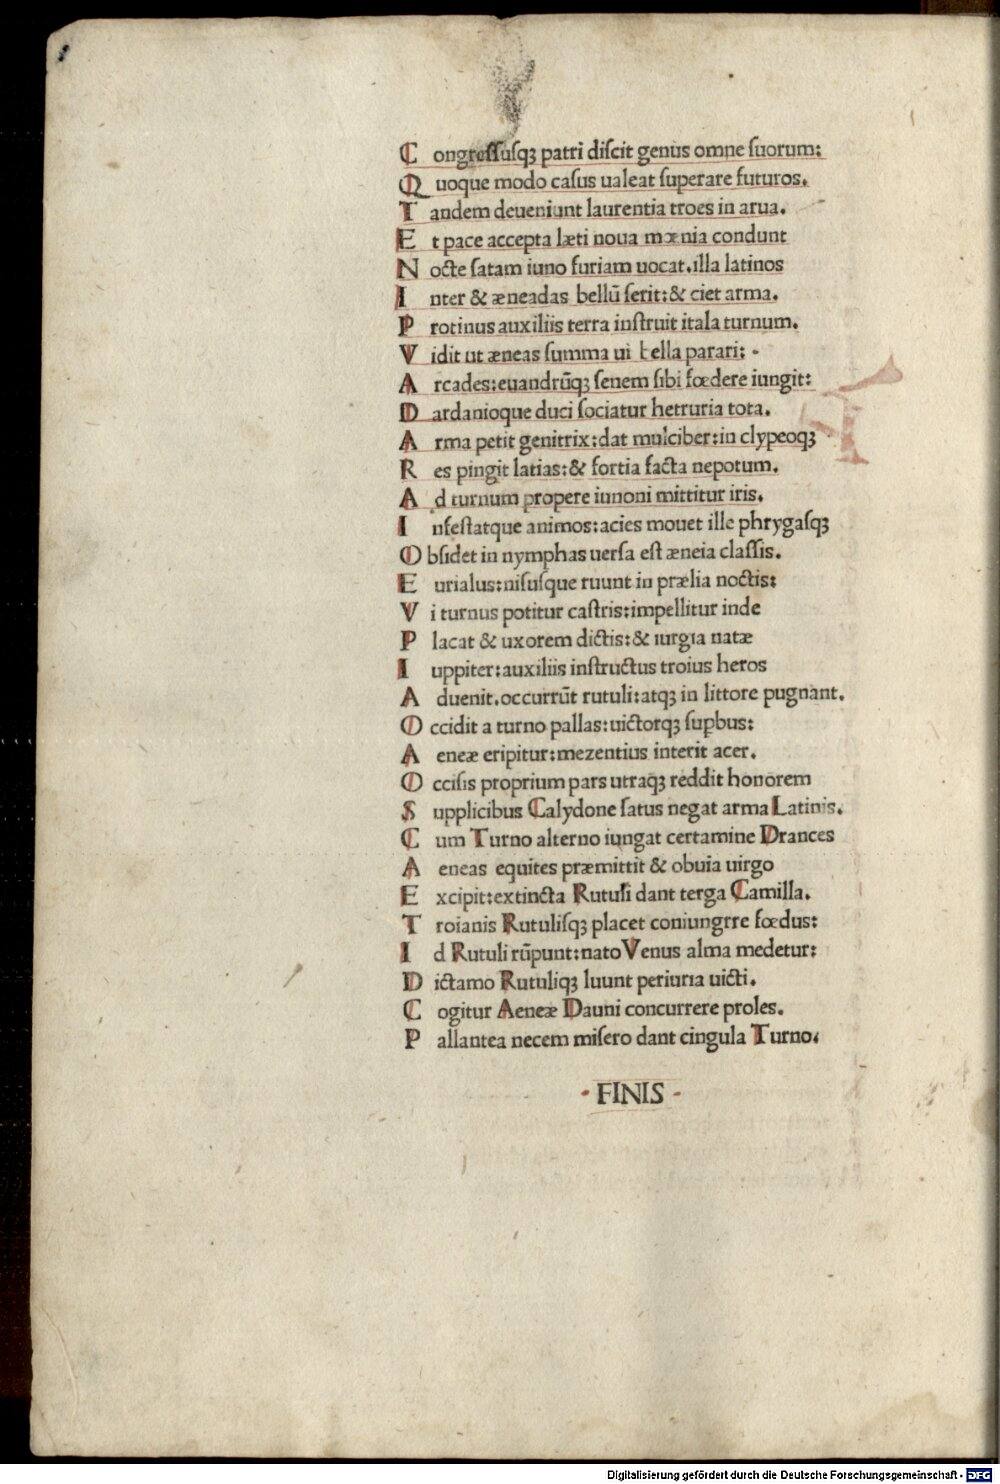 C ongreſſuſqꝫ patri diſcit genus omne ſuorum:
Q uoque modo caſus ualeat ſuperare futuros.
T andem deueniunt laurentia troes in arua.
E t pace accepta læti noua mœnia condunt
N octe ſatam iuno furiam uocat.illa latinos
I nter & æneadas bellū ſerit:& ciet arma.
P rotinus auxiliis terra inſtruit itala turnum.
V idit ut æneas ſumma ui bella parari:
A rcades:euandrūqꝫ ſenem ſibi fœdere iungit:
D ardanioque duci ſociatur hetruria tota.
A rma petit genitrix:dat mulciber:in clypeoqꝫ
R es pingit latias:& fortia facta nepotum.
A d turnum propere iunoni mittitur iris.
I nfeſtatque animos:acies mouet ille phrygaſqꝫ
O bſidet in nymphas uerſa eſt æneia claſſis.
E urialus:niſuſque ruunt in prælia noctis:
V i turnus potitur caſtris:impellitur inde
P lacat & uxorem dictis:& iurgia natæ
I uppiter:auxiliis inſtructus troius heros
A duenit.occurrūt rutuli:atqꝫ in littore pugnant.
O ccidit a turno pallas:uictorqꝫ ſuꝑbus:
A eneæ eripitur:mezentius interit acer.
O cciſis proprium pars utraqꝫ reddit honorem
S upplicibus Calydone ſatus negat arma Latinis.
C um Turno alterno iungat certamine Drances
A eneas equites præmittit & obuia uirgo
E xcipit:extincta Rutuli dant terga Camilla.
T roianis Rutuliſqꝫ placet coniungrre fœdus:
I d Rutuli rūpunt:nato Venus alma medetur:
D ictamo Rutuliqꝫ luunt periuria uicti.
C ogitur Aeneæ Dauni concurrere proles.
P allantea necem miſero dant cingula Turno.
· FINIS ·
Digitalisierung gefördert durch die Deutsche Forschungsgemeinschaft - DFG